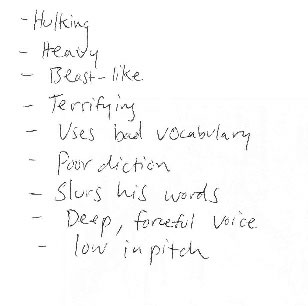 -Hulking
- Heavy
- Beast-like
- Terrifying
- Uses bad vocabulary
- Poor diction
- Slurs his words
- Deep, forceful voice
- low in pitch